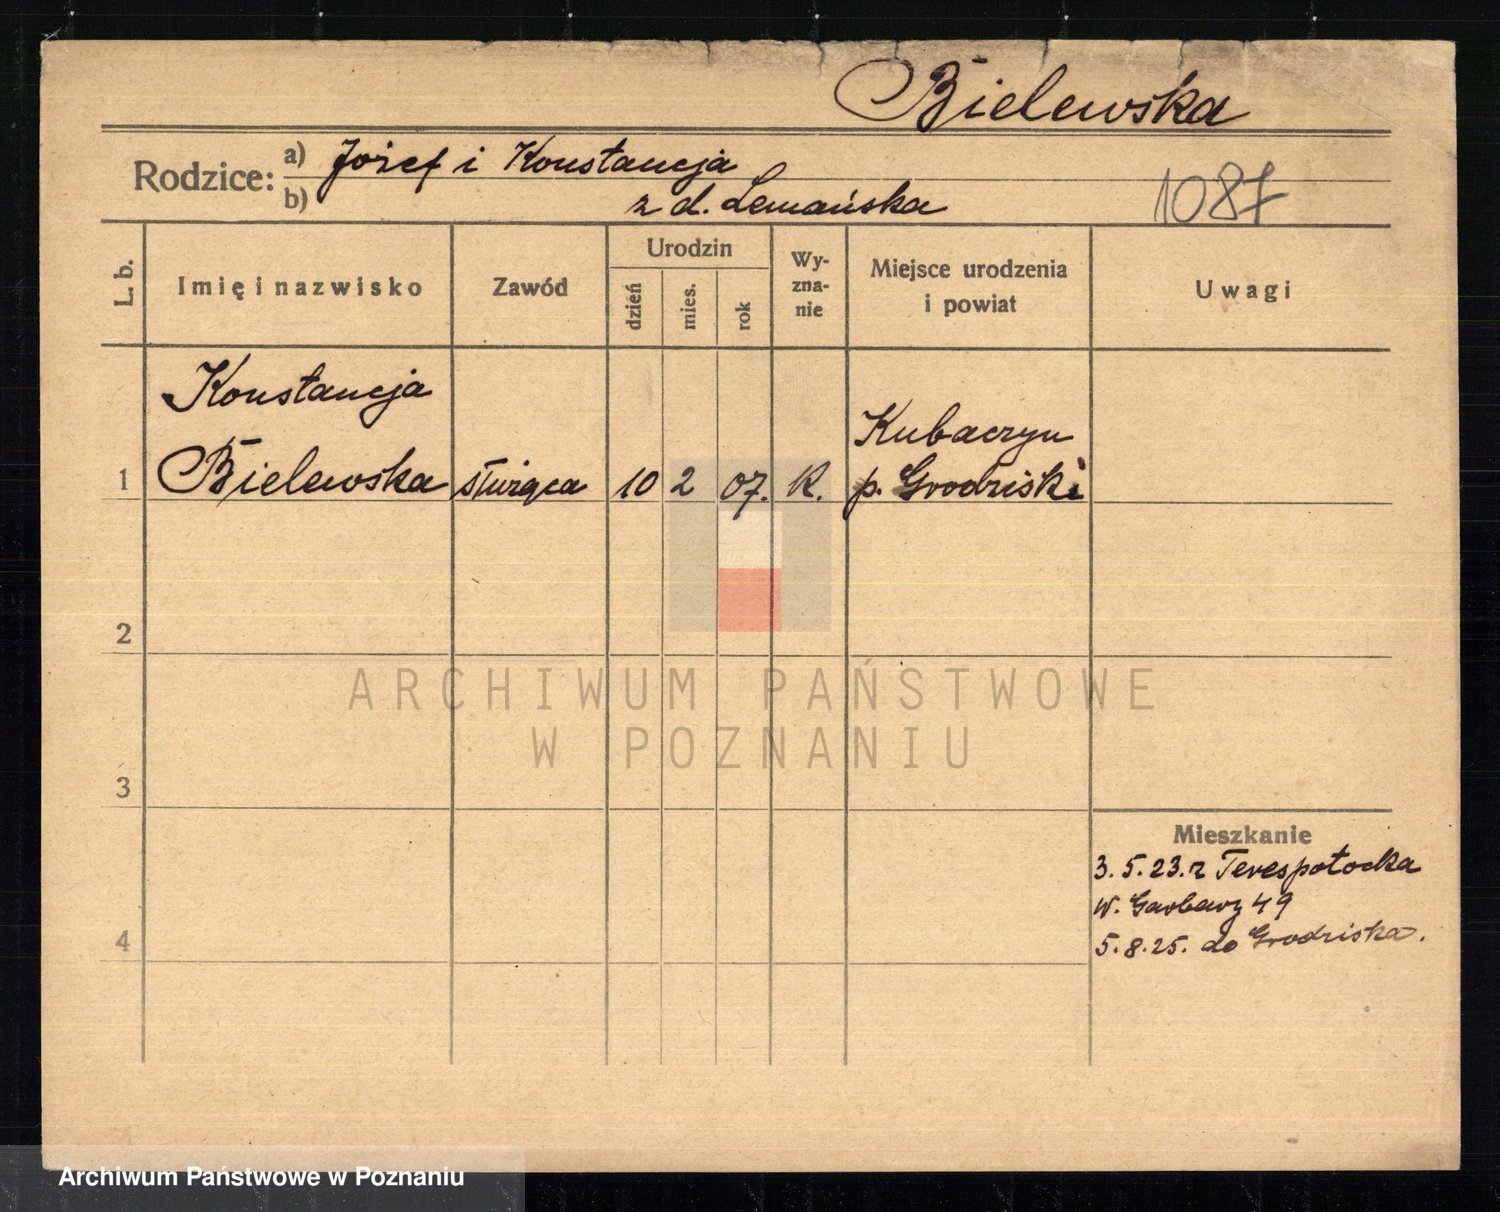 Bielewska
Rodzice: a) Józef i Konstancja
b) z d. Lemańska
1087
L. b.
Imię i nazwisko
Zawód
Urodzin
dzień
mies.
rok
Wy-
zna-
nie
Miejsce urodzenia
i powiat
Uwagi
Konstancja
1 Bielewska służąca 10 2 07. K. Kubaczyn
p. Grodziski
2
3
4
Mieszkanie
3.5.23. z Terespotocka
W. Garbary 49
5.8.25. do Grodziska.
ARCHIWUM PAŃSTWOWE
W POZNANIU
Archiwum Państwowe w Poznaniu